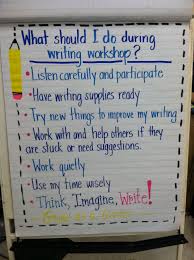 What should I do during
writing workshop?
• Listen carefully and participate
• Have writing supplies ready
• Try new things to improve my writing
• Work with and help others if they
are stuck or need suggestions.
• Work quietly
• Use my time wisely
• Think, Imagine, Write!